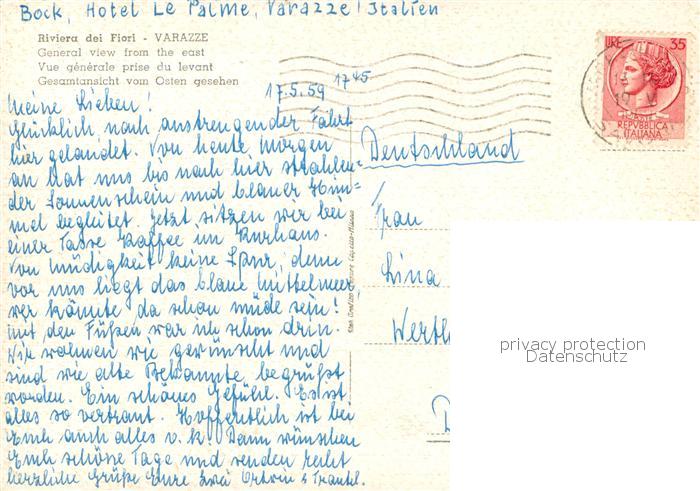 Bock, Hotel Le Palme, Varazze, Italien
Riviera dei Fiori - VARAZZE
General view from the east
Vue générale prise du levant
Gesamtansicht vom Osten gesehen
17.5.59 17 45
LIRE 35
REPVBBLICA
ITALIANA
Meine Lieben!
Glücklich nach anstrengender Fahrt
hier gelandet. Von heute morgen
an hat uns bis nach hier strahlen=
der Sonnenschein und blauer Him=
mel begleitet. Jetzt sitzen wir bei
einer Tasse Kaffee im Kurhaus.
Von Müdigkeit keine Spur, denn
vor uns liegt das blaue Mittelmeer,
wer könnte da schon müde sein!
Mit den Füßen war ich schon drin.
Wir wohnen wie gewünscht und
sind wie alte Bekannte begrüßt
worden. Ein schönes Gefühl. Es ist
alles so vertraut. Hoffentlich ist bei
Euch auch alles o.k. Dann wünschen
Euch schöne Tage und senden recht
herzliche Grüße Eure zwei
Deutschland
Frau
Lina
Werth
privacy protection
Datenschutz